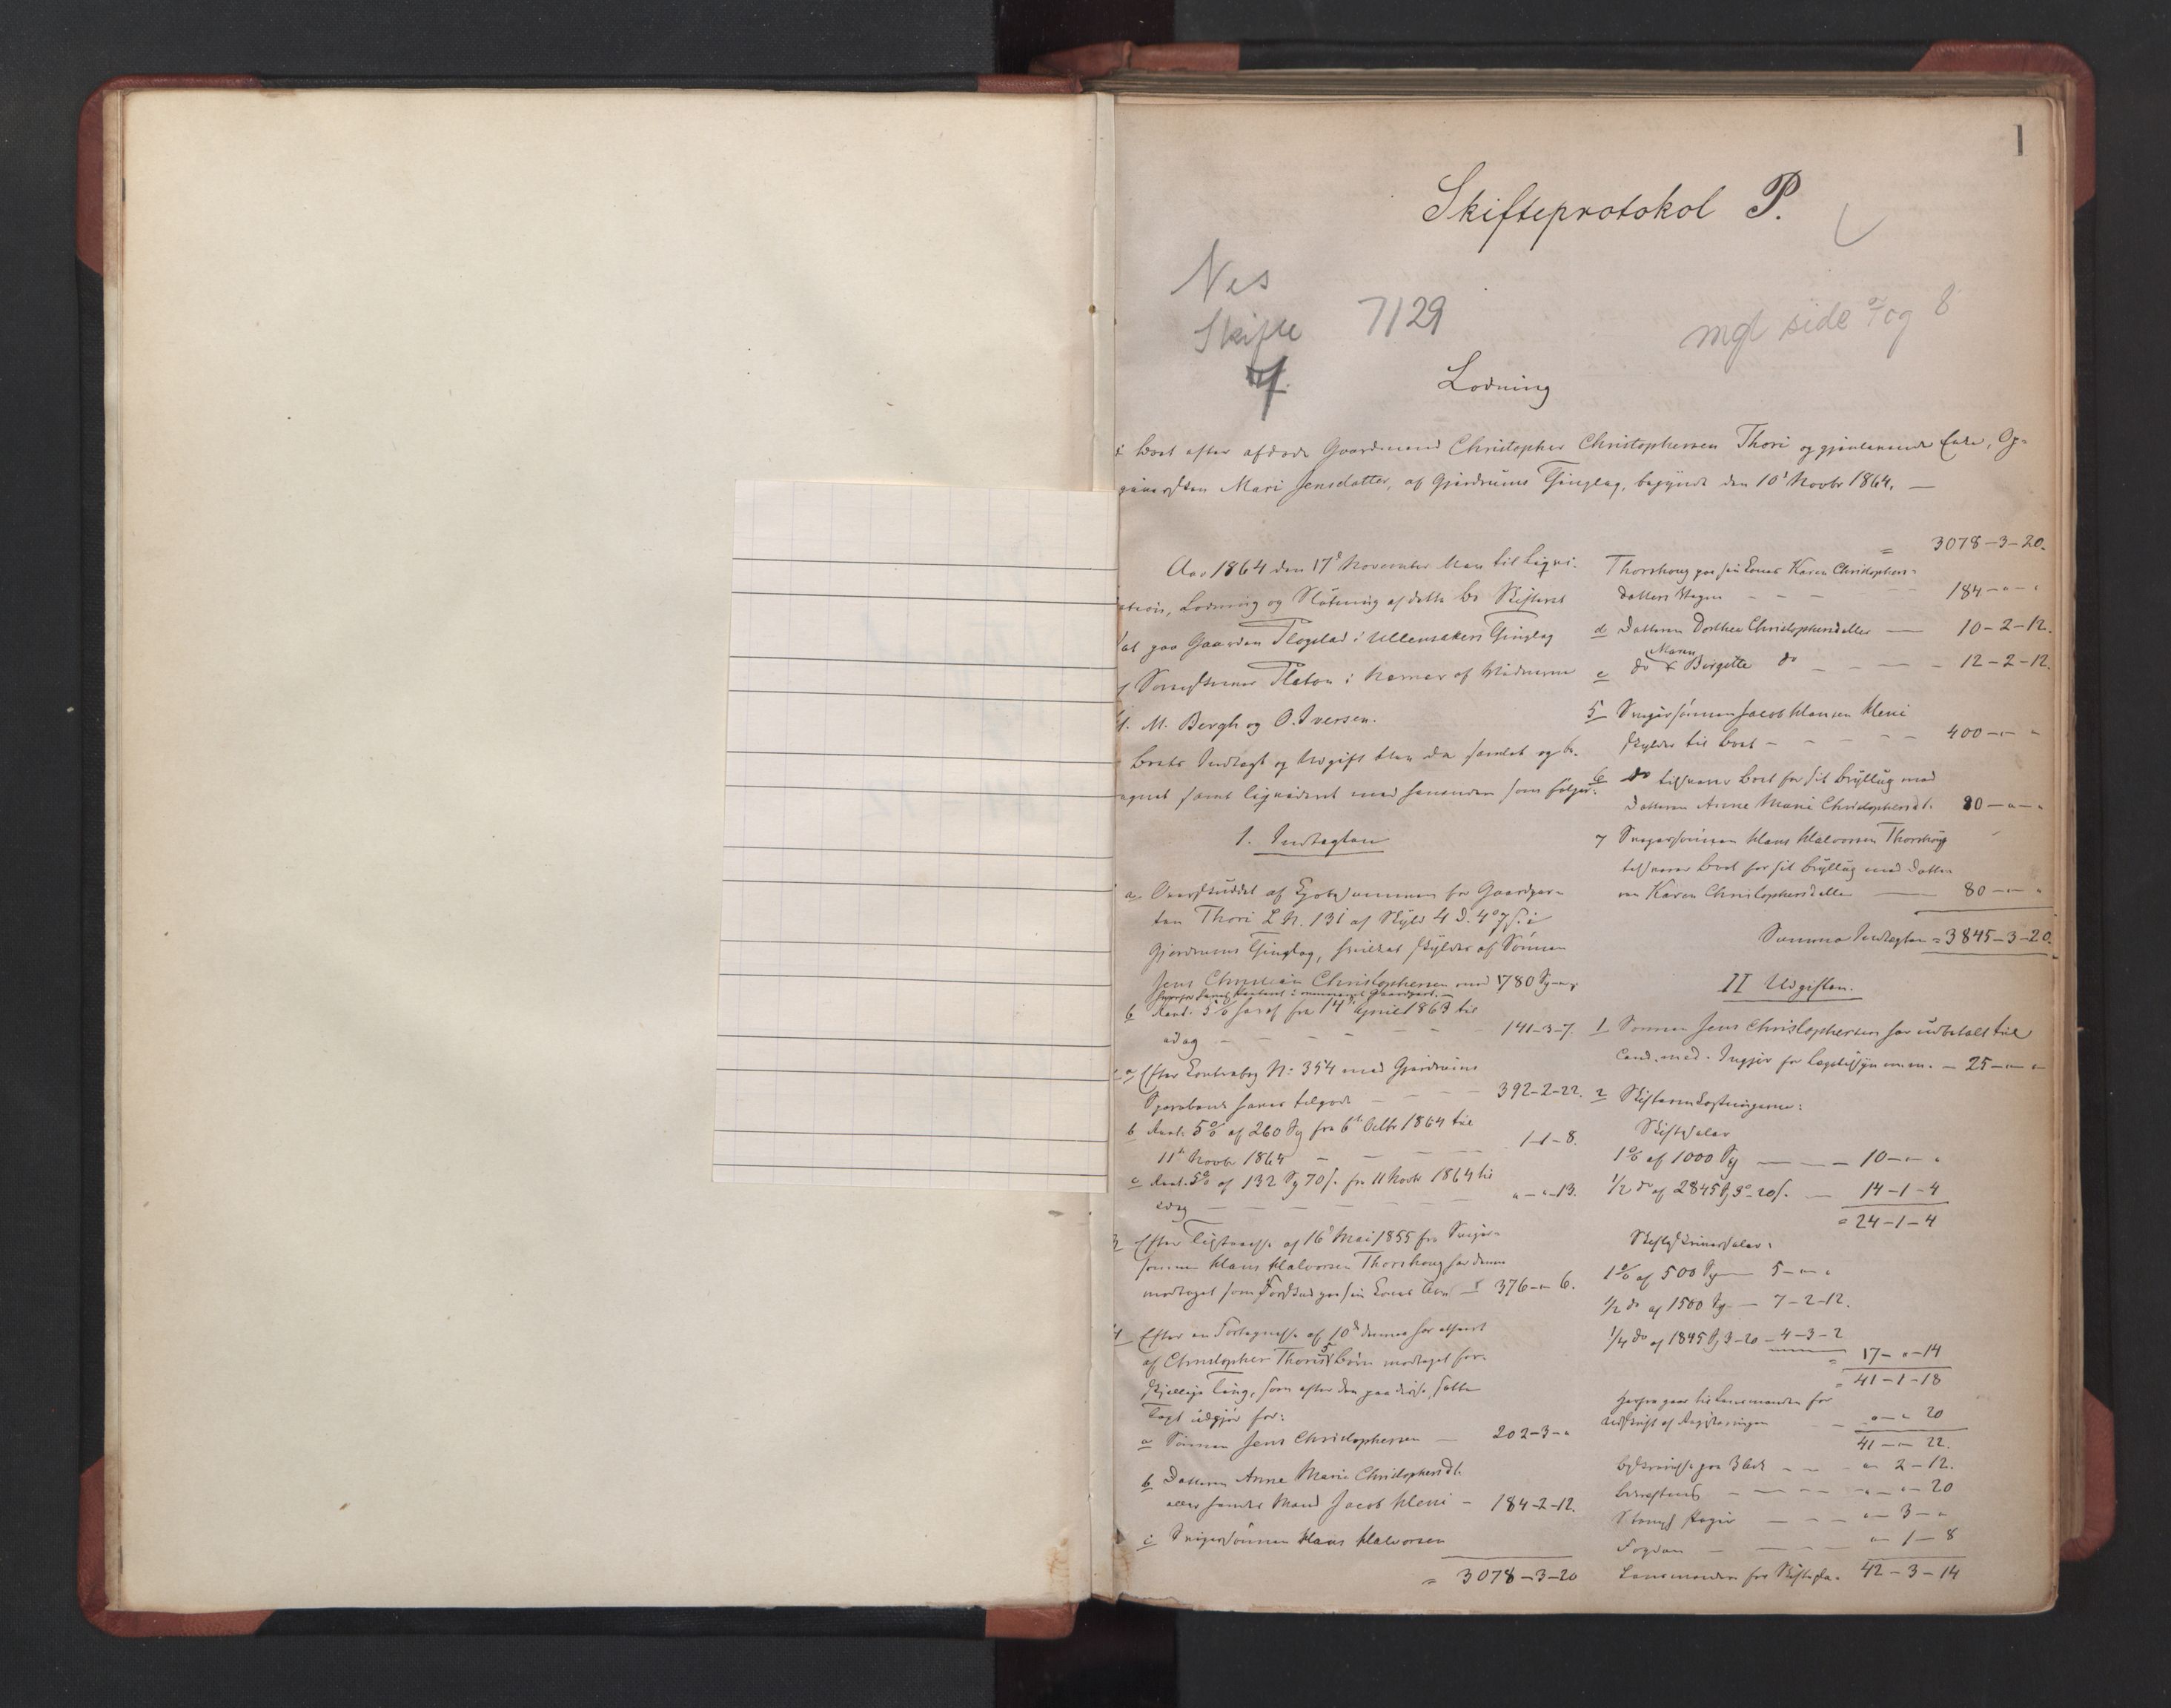 1
Skifteprotokol P.
Nes
Skifte 7129
mgl side 7 og 8
Lodning
i Boet efter afdøde Gaardmand Christopher Christophersen Thori og gjenlevende Enke, Op-
Mari Jensdatter, af Gjerdrums Thinglag, begyndt den 10d Novbr 1864. —
Aar 1864 den 17d November blev til Liqvi-
dation, Lodning og Slutning af dette Bo Skifteret
sat paa Gaarden Flogstad i Ullensakers Thinglag
af Sorenskriver Flaton i Nærvær af Vidnerne
M. Bergh og O. Iversen.
Boets Indtægt og Udgift blev da samlet og be-
regnet samt liqvideret med saaledes som følger:
1. Indtægten
a, Overskuddet af Kjøbesummen for Gaardpar-
ten Thori L. N. 131 af Skyld 4 D. 4 i
Gjerdrums Thinglag, hvilket skyldes af Sønnen
Jens Christian Christophersen med 1780 Spd
b Rent. 5 % heraf fra 14d April 1863 til
idag — — — 141-3-7.
a Efter Contrabog N: 354 med Gjerdrums
Sparebank haves tilgode — — 392-2-22.
b Rent. 5% af 260 Spd fra 6d Octbr 1864 til
11d Novbr 1864 — — — 1-1-8.
c Rent. 5% af 132 Spd 70 s. fra 11 Novbr 1864 til
idag — — — " - " -13.
3 Efter Tilstaaelse af 16d Mai 1855 fra Sviger-
sønnen Hans Halvorsen Thorshoug har denne
modtaget som Forskud paa sin Kones Arv — 376-"-6.
4 Efter en Fortegnelse af 10d dennes har
af Christopher Thoris 5 Børn modtaget for-
skjellige Ting, som efter den paa disse satte
Taxt udgjør for:
a Sønnen Jens Christophersen — 202-3-"
b Datteren Anne Marie Christophersdt.
eller hendes Mand Jacob Kleni — 184-2-12.
c Svigersønnen Hans Halvorsen
= 3078-3-20
= 3078-3-20.
Thorshoug paa sin Kones Karen Christophers-
datters Vegne — — — 184-"-"
d Datteren Dorthea Christophersdatter — 10-2-12.
e do Maren Birgitte do — — — 12-2-12.
5 Svigersønnen Jacob Hansen Kleni
skylder til Boet — — — 400-"-"
6 do tilsvarer Boet for sit Bryllup med
Datteren Anne Marie Christophersdt. 80-"-"
7 Svigersønnen Hans Halvorsen Thorshoug
tilsvarer Boet for sit Bryllup med Datte-
ren Karen Christophersdatter — 80-"-"
Summa Indtægten = 3845-3-20.
II Udgiften.
1 Sønnen Jens Christophersen har udbetalt til
Cand. med. for m. m. — 25-"-"
2 Skifteomkostningerne:
Skiftesalær
1% af 1000 Spd — — 10-"-"
1/2 do af 2845 Spd 3-20 s. — 14-1-4
= 24-1-4
Skifteskriversalær:
1% af 500 Spd — 5-"-"
1/2 do af 1500 Spd — 7-2-12.
1/4 do af 1845 Spd 3-20 — 4-3-2
= 17-"-14
= 41-1-18
Herfra gaar til Lensmanden for
Udskrift af Registreringen — "-"-20
41-"-22.
Beskrivelse paa 3 — — "-2-12.
— — — "-"-20
Stempl. Papir — — — "-3-"
Fogden — — — "-1-8
Lensmanden for 42-3-14